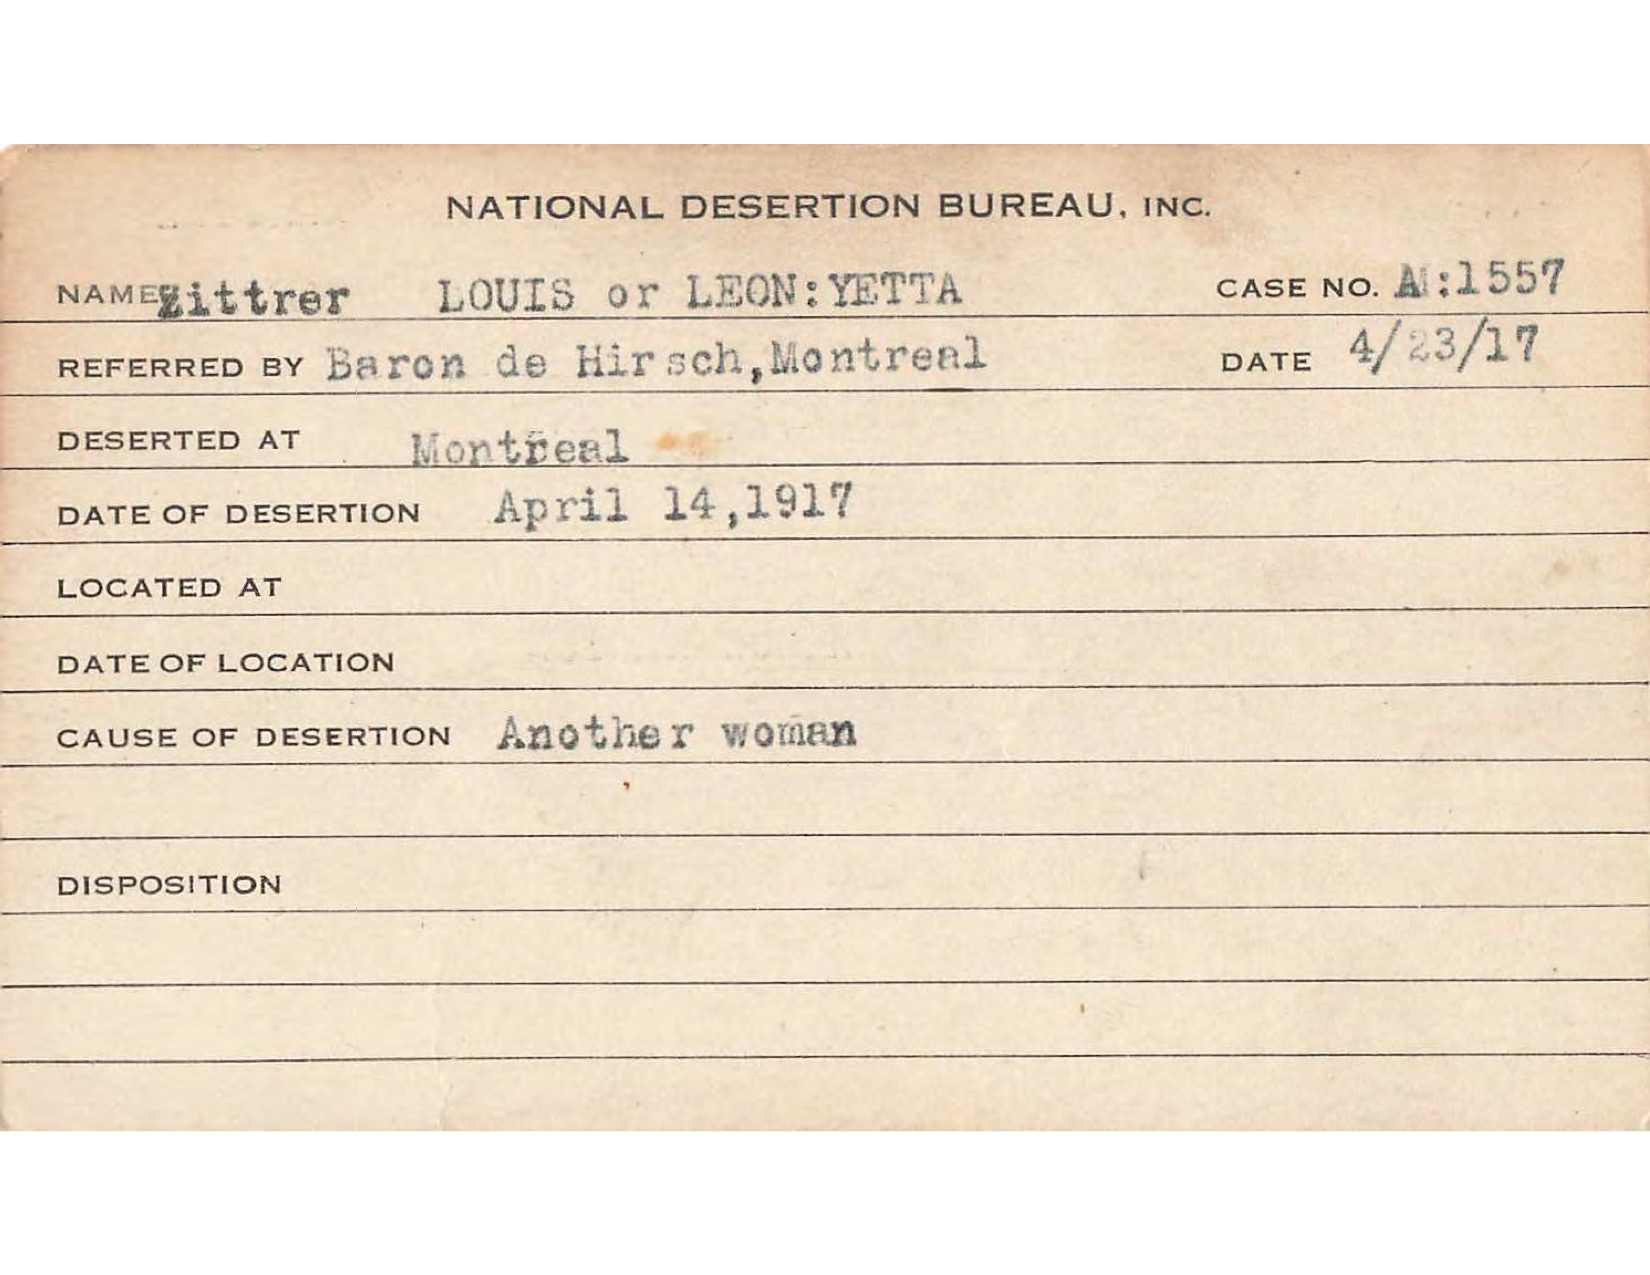 NATIONAL DESERTION BUREAU, INC.
NAME Zittrer LOUIS or LEON:YETTA CASE NO. A:1557
REFERRED BY Baron de Hirsch,Montreal DATE 4/23/17
DESERTED AT Montreal
DATE OF DESERTION April 14,1917
LOCATED AT
DATE OF LOCATION
CAUSE OF DESERTION Another woman
DISPOSITION